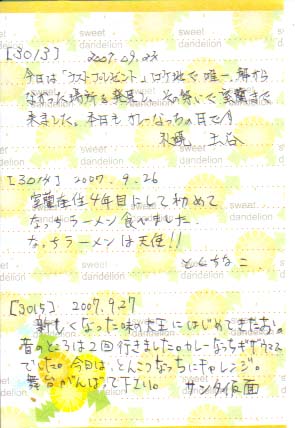 [3013] 2007.09.23
今日は「ラストプレゼント」ロケ地で、唯一、解から
なかった場所を発見し、その勢いで、室蘭まで
来ました。本日もカレーなっちの日です
札幌
[3014] 2007.9.26
室蘭在住4年目にして初めて
なっちラーメン食べました。
なっちラーメンは天使!!
[3015] 2007.9.27
新しくなった味の大王にはじめてきたお。
昔のところは2回行きました。カレーなっち
でした。今日は、とんこつなっちにチャレンジ。
舞台がんばって下さい。 サンタ仮面
sweet
dandelion
sweet
dandelion
sweet
dandelion